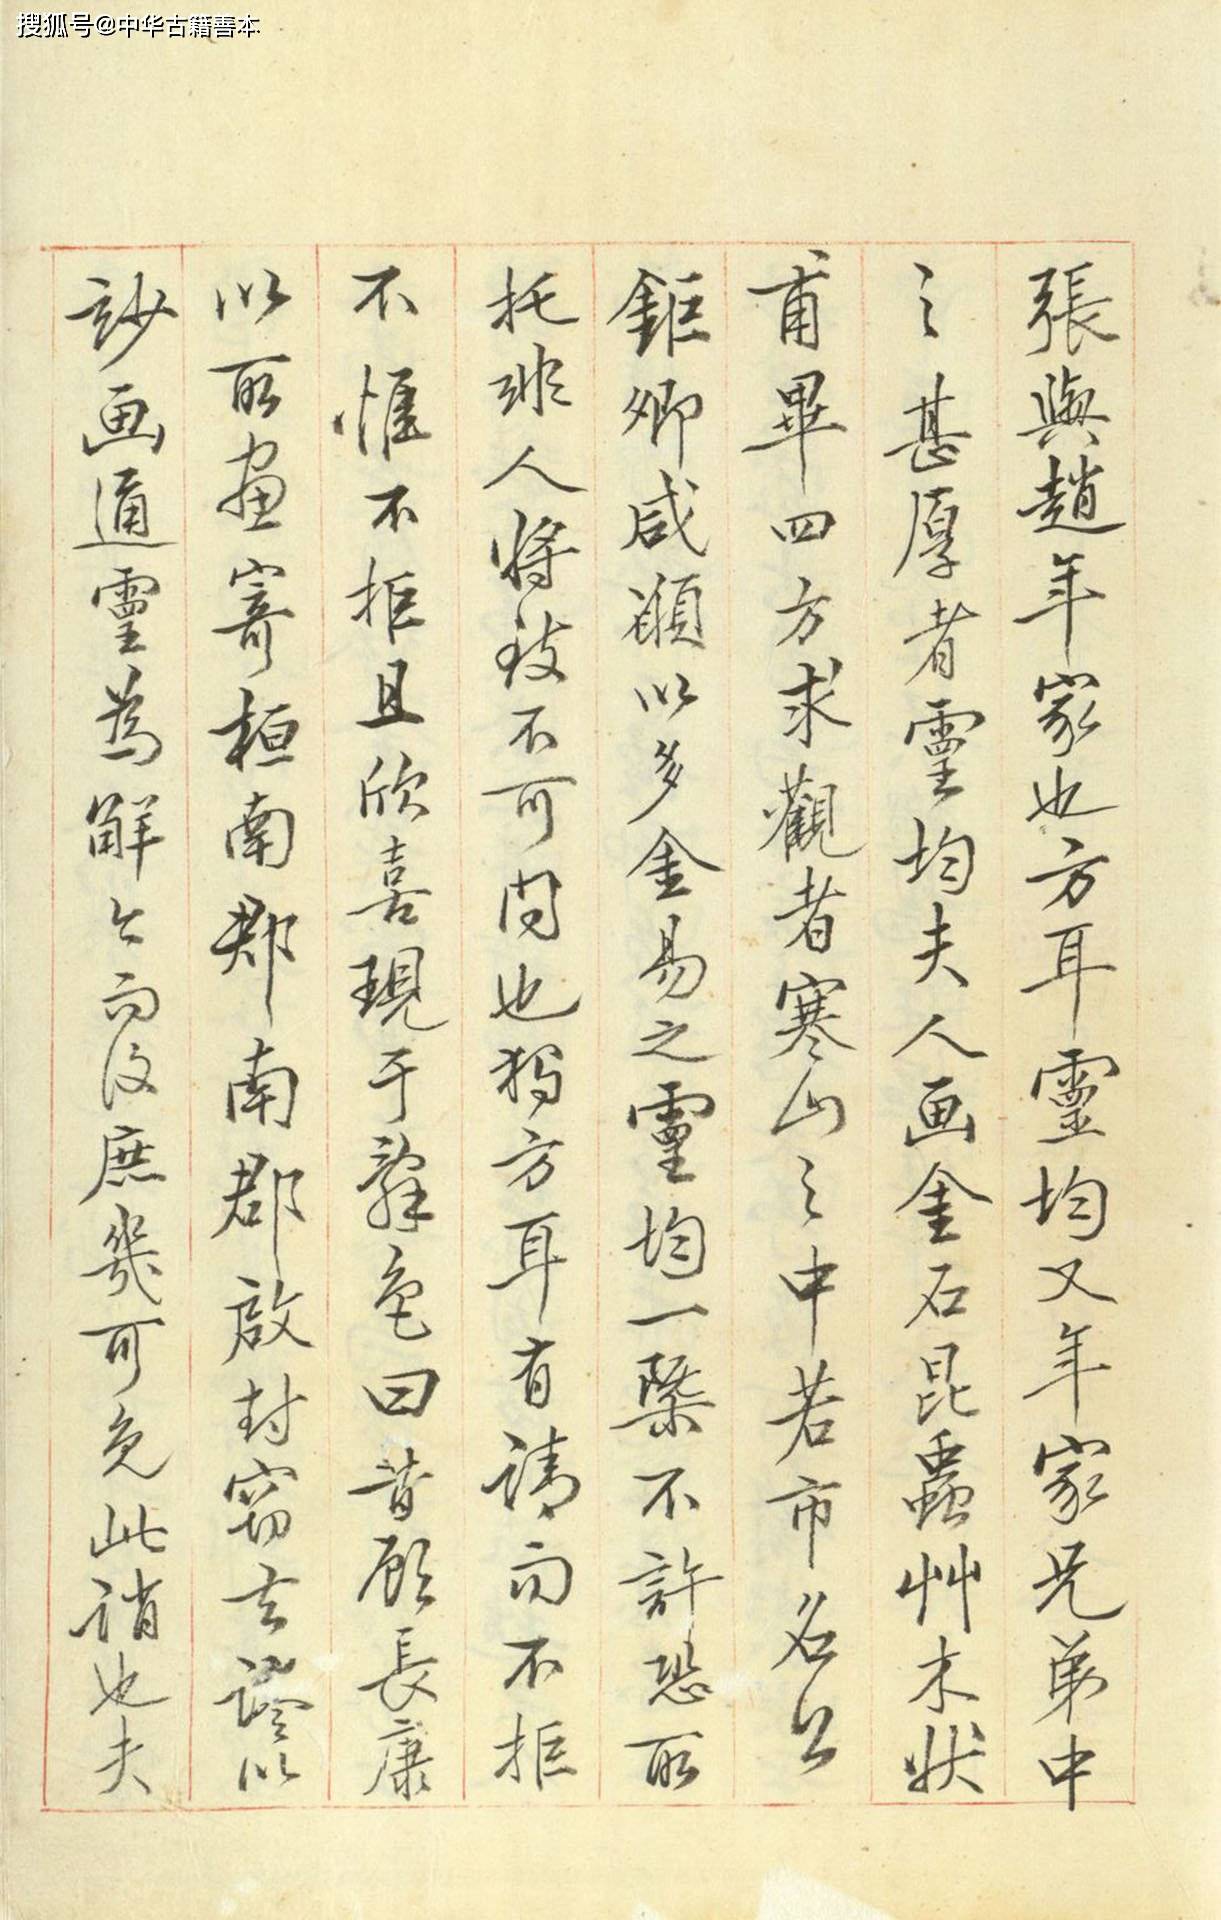 搜狐号@中华古籍善本
張與趙年家也方耳靈均又年家兄弟中
之甚厚者靈均夫人画金石昆蟲艸木狀
甫畢四方求觀者寒山之中若市名公
鉅卿咸願以多金易之靈均一槩不許恐所
托非人將致不可问也獨方耳有請而不拒
不惟不拒且欣喜現于辭色曰昔顧長康
以所畫寄桓南郡南郡啟封竊去謬以
玅画通靈為解公而汝庶幾可免此誚也夫